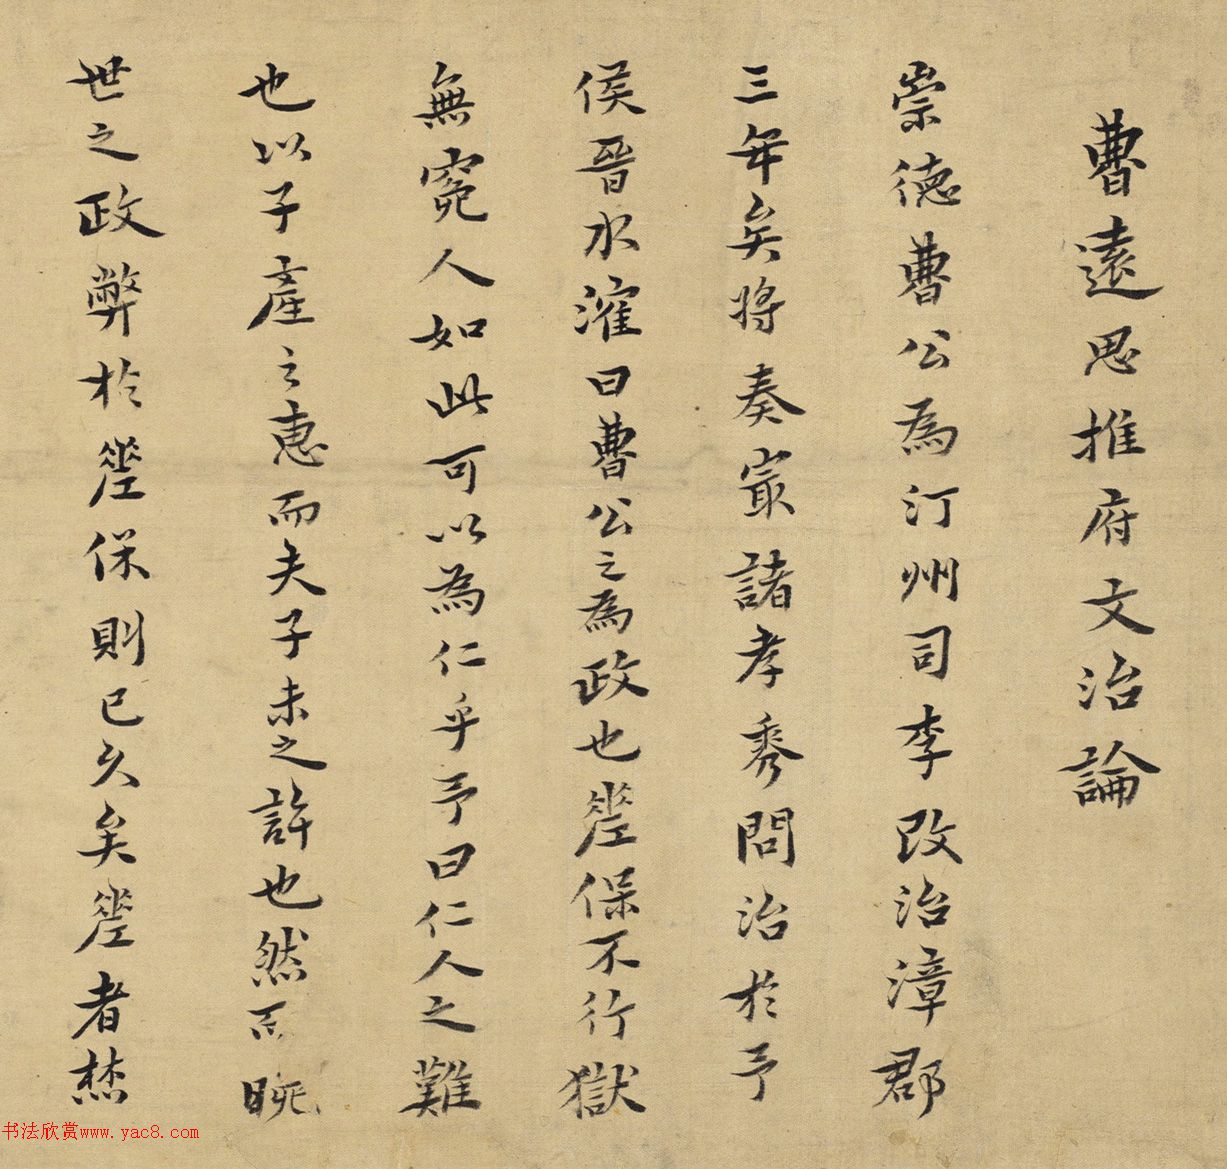 曹遠思推府文治論
崇德曹公為汀州司李改治漳郡
三年矣將奏最諸孝秀問治於予
侯晉水曰曹公之為政也保不行獄
無冤人如此可以為仁乎予曰仁人之難
也以子產之惠而夫子未之許也然而晚
世之政弊於保則已久矣者
书法欣赏www.yac8.com